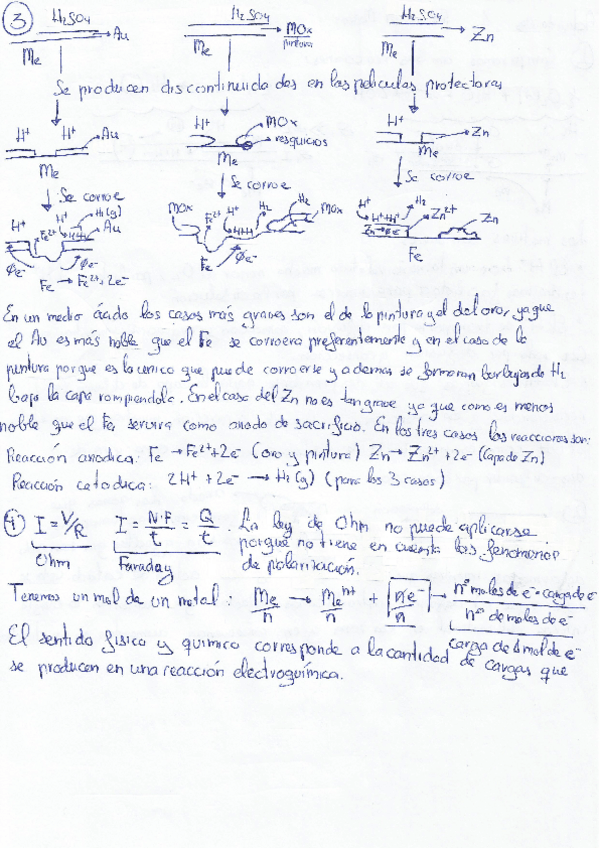 3
H₂SO₄ H₂SO₄ H₂SO₄
Au MOx Zn
pintura
Me Me Me
Se producen discontinuidades en las peliculas protectoras
H⁺ H⁺ Au H⁺ MOx H⁺ Zn
resquicios
Me Me Me
Se corroe Se corroe Se corroe
H⁺ H₂(g) MOx Fe²⁺ H⁺ H₂ H₂ MOx H₂
Fe²⁺ HH Au HHH H⁺ H⁺ Zn²⁺ Zn
φe⁻ φe⁻ Fe φe⁻ Fe
Fe → Fe²⁺+2e⁻
En un medio ácido los casos más graves son el de la pintura y el del oro, ya que
el Au es más noble que el Fe se corroera preferentemente y en el caso de la
pintura porque es lo unico que puede corroerse y ademas se formaran burbujas de H₂
bajo la capa rompiendola. En el caso del Zn no es tan grave ya que como es menos
noble que el Fe servira como anodo de sacrificio. En los tres casos las reacciones son:
Reacción anodica: Fe → Fe²⁺+2e⁻ (oro y pintura) Zn → Zn²⁺ +2e⁻ (Capa de Zn)
Reacción catodica: 2H⁺ +2e⁻ → H₂(g) (para los 3 casos)
4 I = V/R I = N·F/t = Q/t . La ley de Ohm no puede aplicarse
Ohm Faraday porque no tiene en cuenta los fenomenos
de polarización.
Tenemos un mol de un metal: Me/n → Meⁿ⁺/n + ne⁻/n → nº moles de e⁻·carga de e⁻
nº de moles de e⁻
carga de 1 mol de e⁻
El sentido fisico y quimico corresponde a la cantidad de cargas que
se producen en una reacción electroquímica.